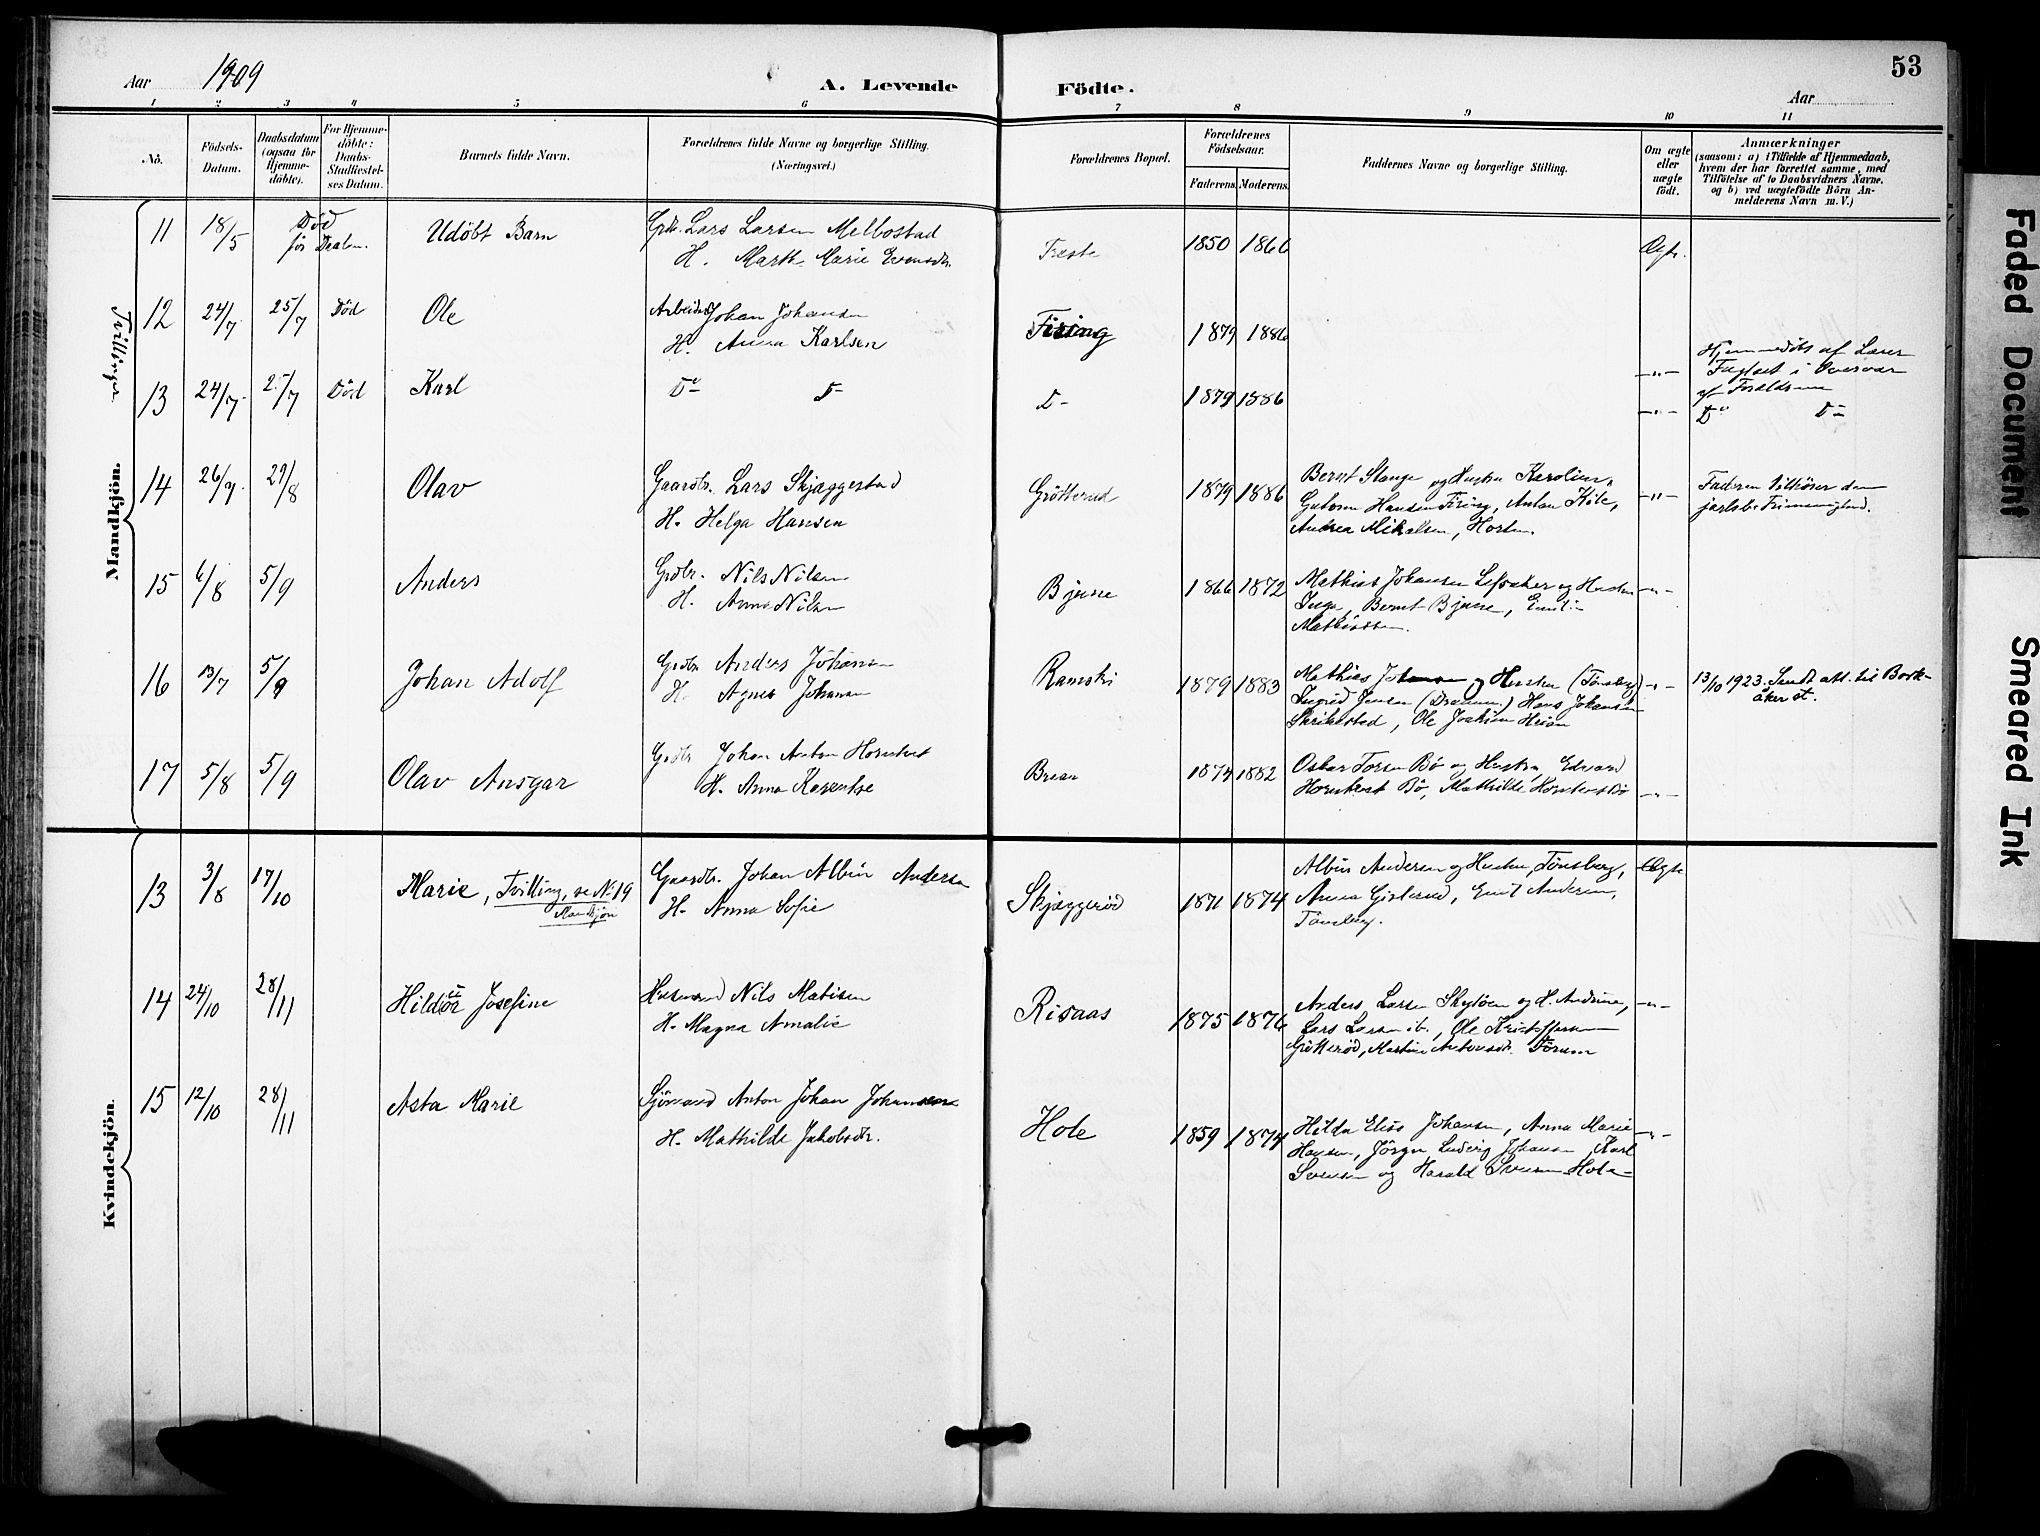 53
Aar 1909
A. Levende Födte.
Aar
1 2 3 4 5 6 7 8 9 10 11
No.
Födsels-
Datum.
Daabsdatum
(ogsaa for
Hjemme-
döbte).
For Hjemme-
döbte:
Daabs-
Stadfæstel-
ses Datum.
Barnets fulde Navn.
Forældrenes fulde Navne og borgerlige Stilling.
(Næringsvei.)
Forældrenes Bopæl.
Forældrenes
Födselsaar.
Faderens. Moderens.
Faddernes Navne og borgerlige Stilling.
Om ægte
eller
uægte
födt.
Anmærkninger
(saasom: a) i Tilfælde af Hjemmedaab,
hvem der har forrettet samme, med
Tilföielse af to Daabsvidners Navne,
og b) ved uægtefödte Börn An-
melderens Navn m. V.)
Mandkjön.
Tvillinger
11 18/5 Död
för Daaben. Udöbt Barn
Grdbr. Lars Larsen Melbostad
H. Marth. Marie Evensdtr.
1850 1866
12 24/7 25/7 Död Ole
Arbeider Johan Johansen
H. Anna Karlsen
Firing 1879 1886 -"-
Hjemmedöbt af Lærer
Fuglset i Overvær
af Forældrene
13 24/7 25/7 Död Karl
Do D-
D- 1879 1886 -"- Do D-
14 26/7 29/8 Olav
Gaardbr. Lars Skjæggestad
H. Helga Hansen
Grötterud 1879 1886
Bernt Stange og Hustru Karoline,
Gutorm Hansen Firing, Anton Kile,
Andrea Mikalsen, Horten.
-"-
Faderen tilhörer den
jarlsb. Frimenighed.
15 6/8 5/9 Anders
Grdbr. Nils Nilsen
H. Anna Nilsen
Bjerne 1866 1872
Mathias Johansen Lefsaker og Hustru
Inga, Bernt Bjerne, Emilie
Mathisen.
-"-
16 13/7 5/9 Johan Adolf
Grdbr. Anders Johansen
H. Agnes Johansen
1879 1883
Mathias Johansen og Hustru (Tönsberg)
Ingrid Jensen (Drammen) Hans Johansen
Skrikestad, Ole Joakim Heian
-"-
13/10 1923. Sendt att. til Bork-
åker st.
17 5/8 5/9 Olav Ansgar
Grdbr. Johan Anton Horntvet
H. Anna Karentse
1874 1882
Oskar Torsen Bö og Hustru, Edvard
Horntvet Bö, Mathilde Horntvet Bö
-"-
Kvindekjön.
13 3/8 17/10 Marie, Tvilling, se No 19
Mandkjön
Gaardbr. Johan Albin Andersen
H. Anna Sofie
Skjæggeröd 1871 1874
Albin Andersen og Hustru, Tönsberg,
Anna Gislerud, Emil Andersen,
Tönsberg.
Ægte
14 24/10 28/11 Hildör Josefine
Husmand Nils Matisen
H. Magna Amalie
Risaas 1875 1876
Anders Larsen og H. Andrine,
Lars Larsen ib., Ole Kristoffersen
Grötteröd, Martine Antonsdtr.
-"-
15 12/10 28/11 Asta Marie
Sjömand Anton Johan Johansen
H. Mathilde Jakobsdtr.
Hole 1859 1874
Hilda Elise Johansen, Anna Marie
Hansen, Jörgen Ludvig Johansen, Karl
Svensen og Harald Svensen Hole
-"-
Faded Document
Smeared Ink